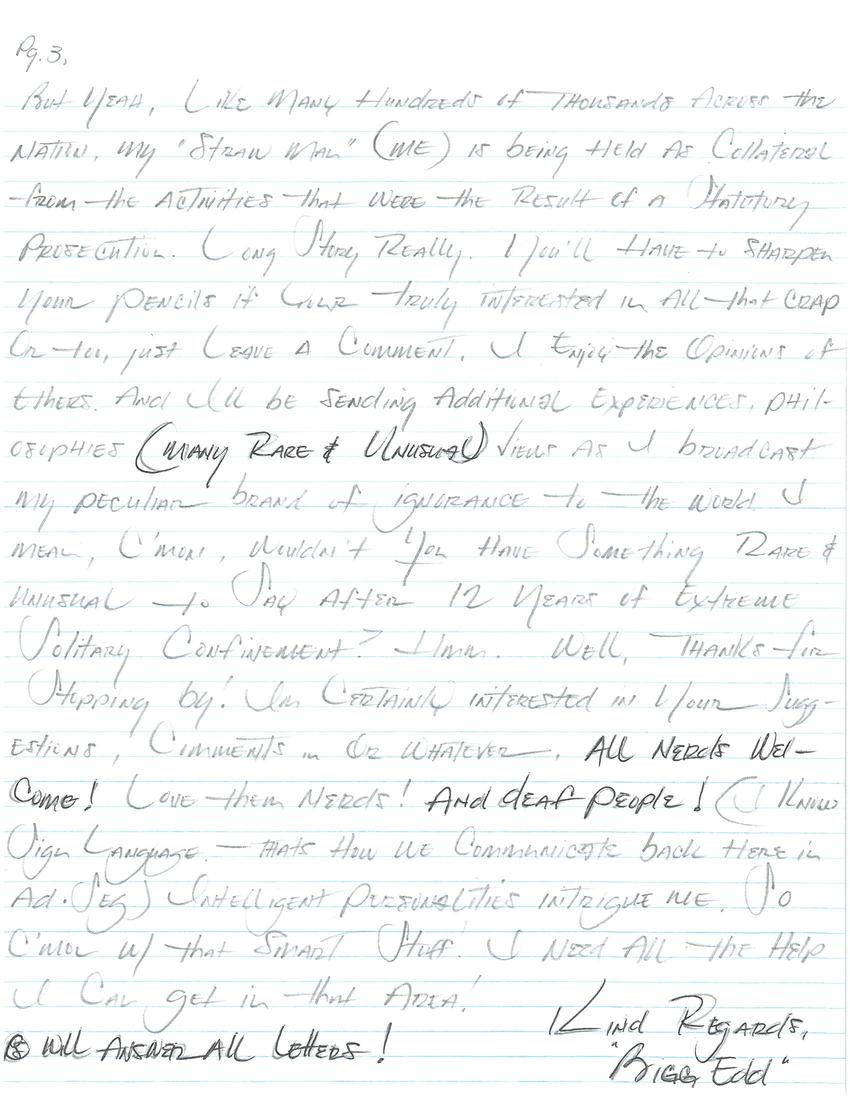 Pg. 3,
But Yeah, Like Many Hundreds of Thousands Across the
Nation, my "Straw Man" (me) is being Held As Collateral
from the Activities that were the Result of a Statutory
Prosecution. Long Story Really. You'll Have to Sharpen
Your pencils if truly interested in All that crap
Or to, just Leave A Comment. I Enjoy the Opinions of
Others. And I'll be sending Additional Experiences, phil-
osophies (many Rare & Unusual) Views As I broadcast
my peculiar brand of ignorance to the world. I
mean, C'mon, wouldn't You Have Something Rare &
Unusual to Say After 12 Years of Extreme
Solitary Confinement? Hmm. Well, Thanks for
Stopping by! Im Certainly interested in Your Sugg-
estions, Comments .. Or Whatever. All Nerds Wel-
come! Love them Nerds! And deaf people! (I Know
Sign Language - thats How we Communicate back Here in
Ad. Seg) Intelligent personalities intrigue me. So
C'mon w/ that Smart Stuff! I Need All the Help
I Can get in that Area!
Kind Regards,
Will Answer All Letters!
"Bigg Edd"